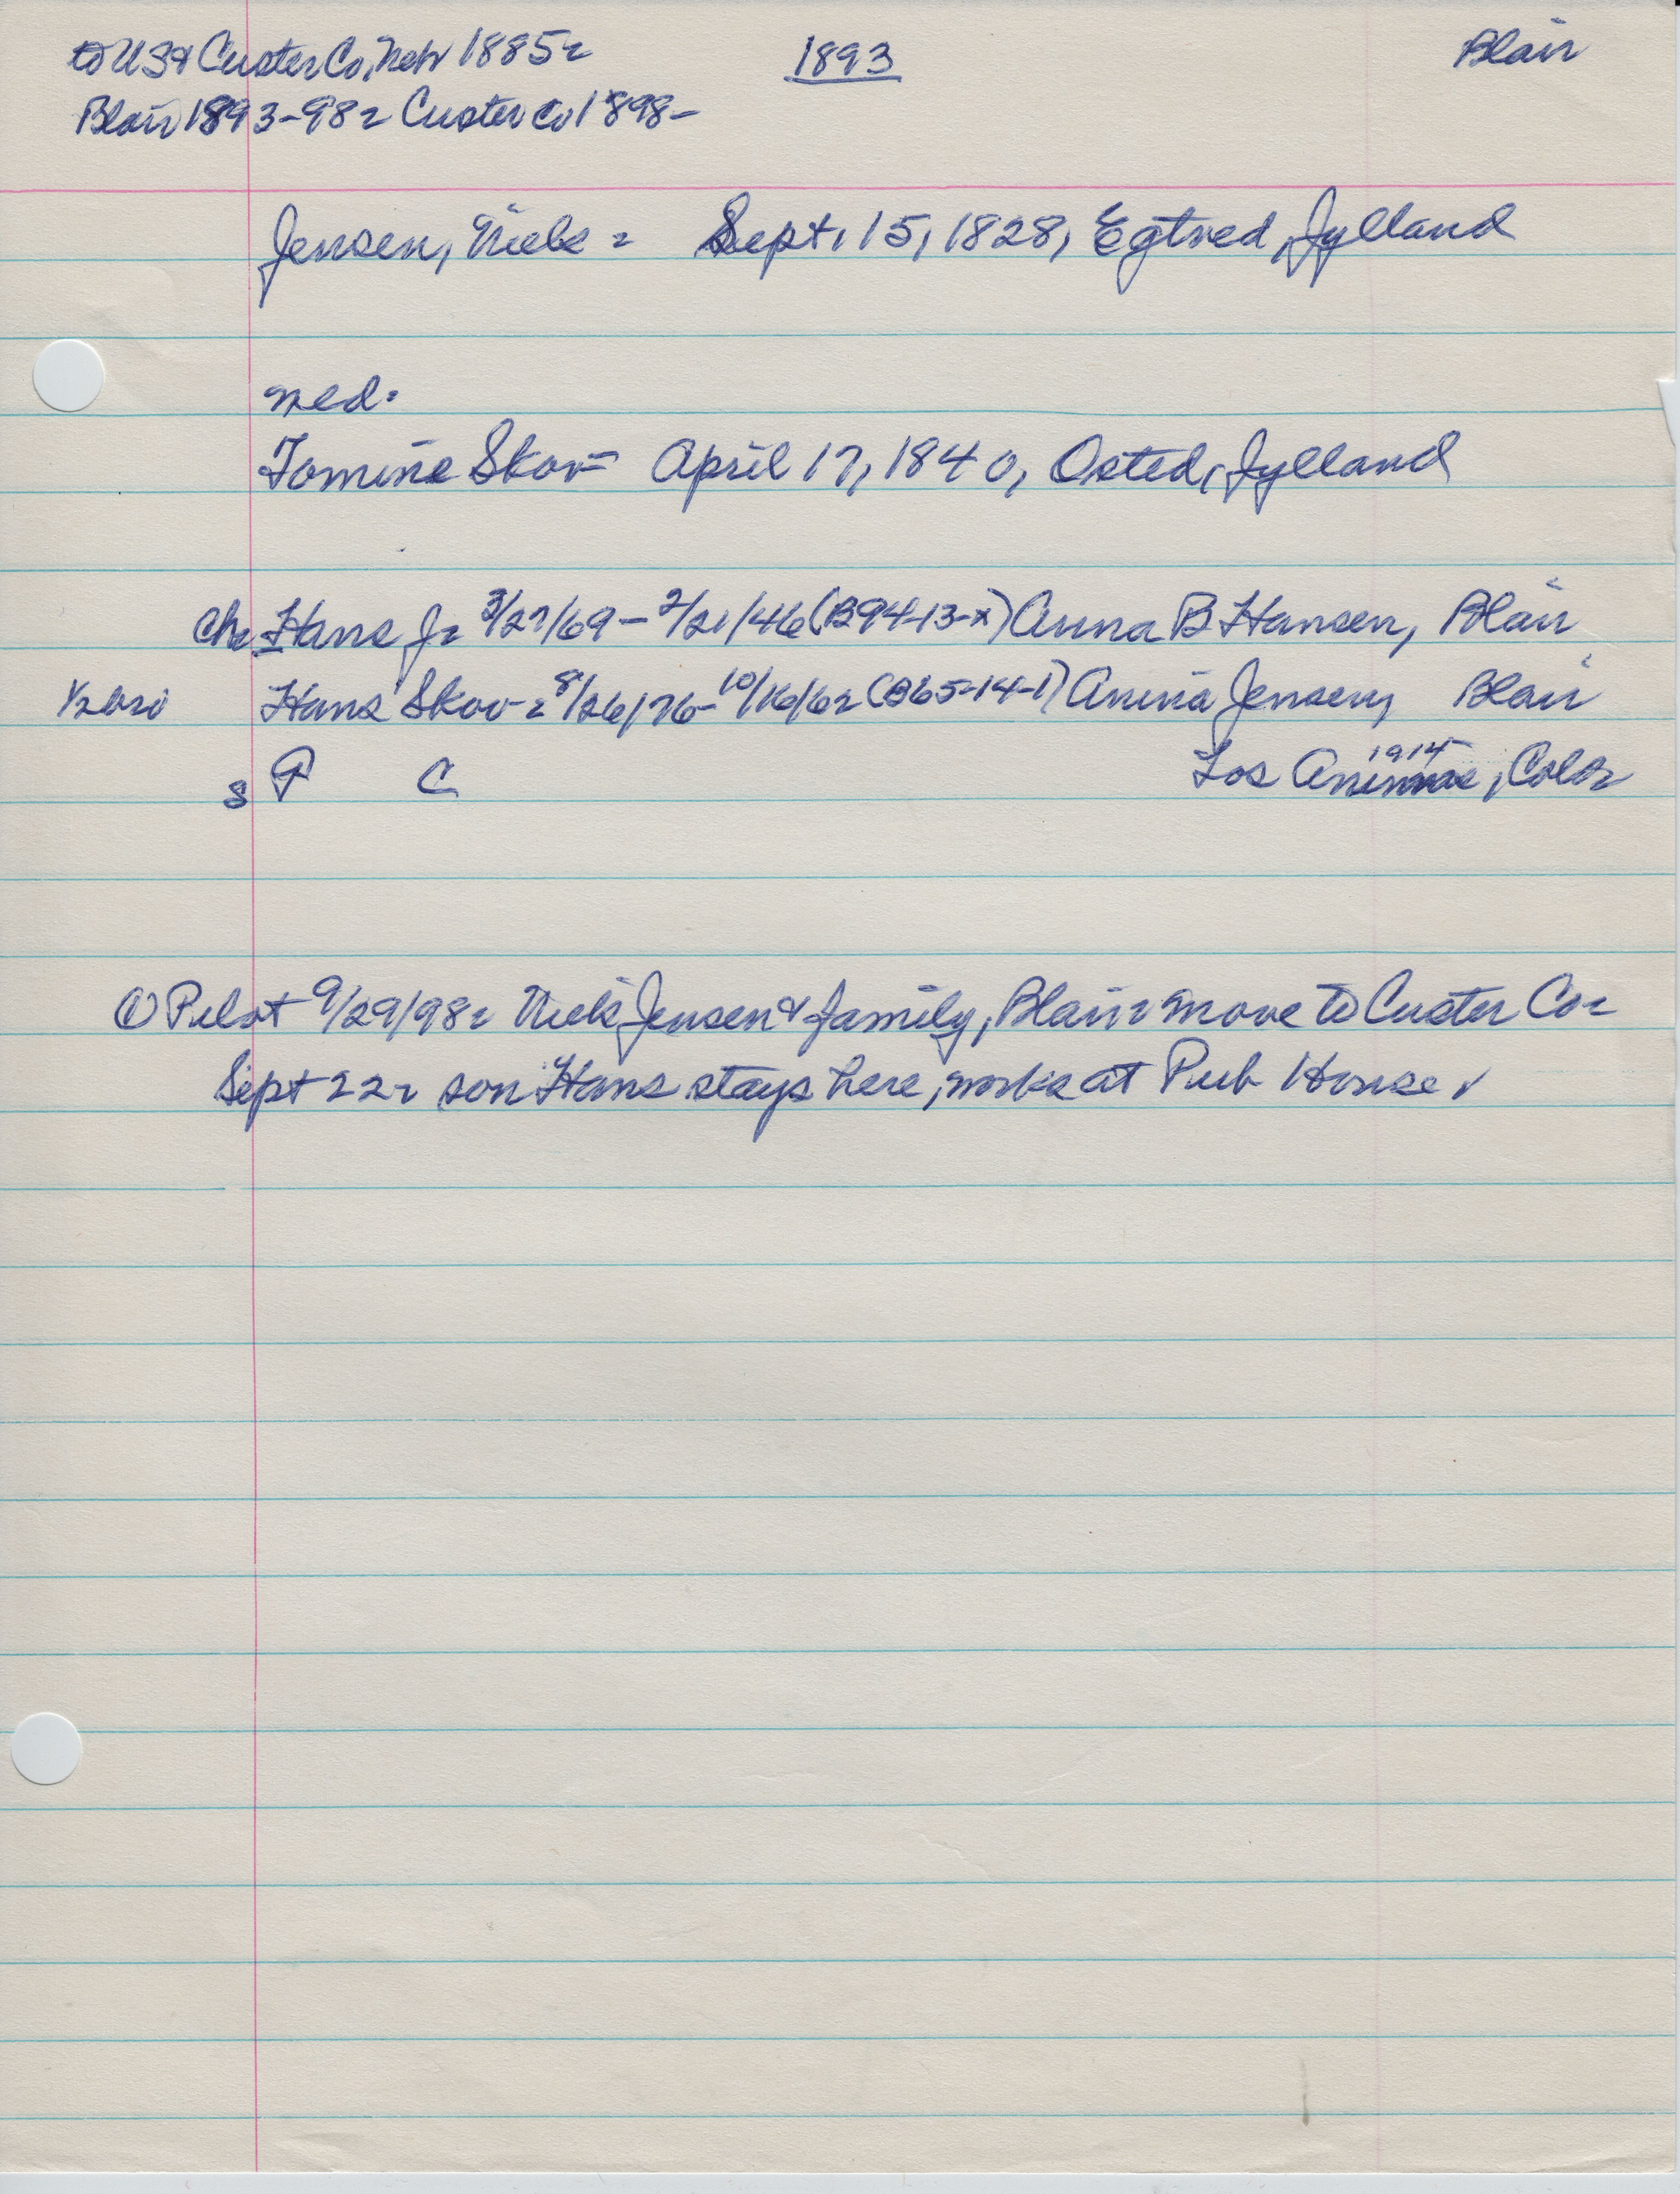 to USA Custer Co, Nebr 1885-
1893
Blair
Blair 1893-98- Custer Co 1898-
Jensen, Niels - Sept. 15, 1828, Egtved, Jylland
med.
Tomine Skov - April 17, 1840, Osted, Jylland
Ch- Hans J- 3/27/69 - 2/21/46 (B94-13-x) Anna B Hansen, Blair
1/2 bro Hans Skov - 8/26/76 - 10/16/62 (B65-14-1) Anina Jensen, Blair
s P C 1914 Los Animas, Colo-
① Pilot 9/29/98- Niels Jensen & family, Blair move to Custer Co-
Sept 22- son Hans stays here, works at Pub House